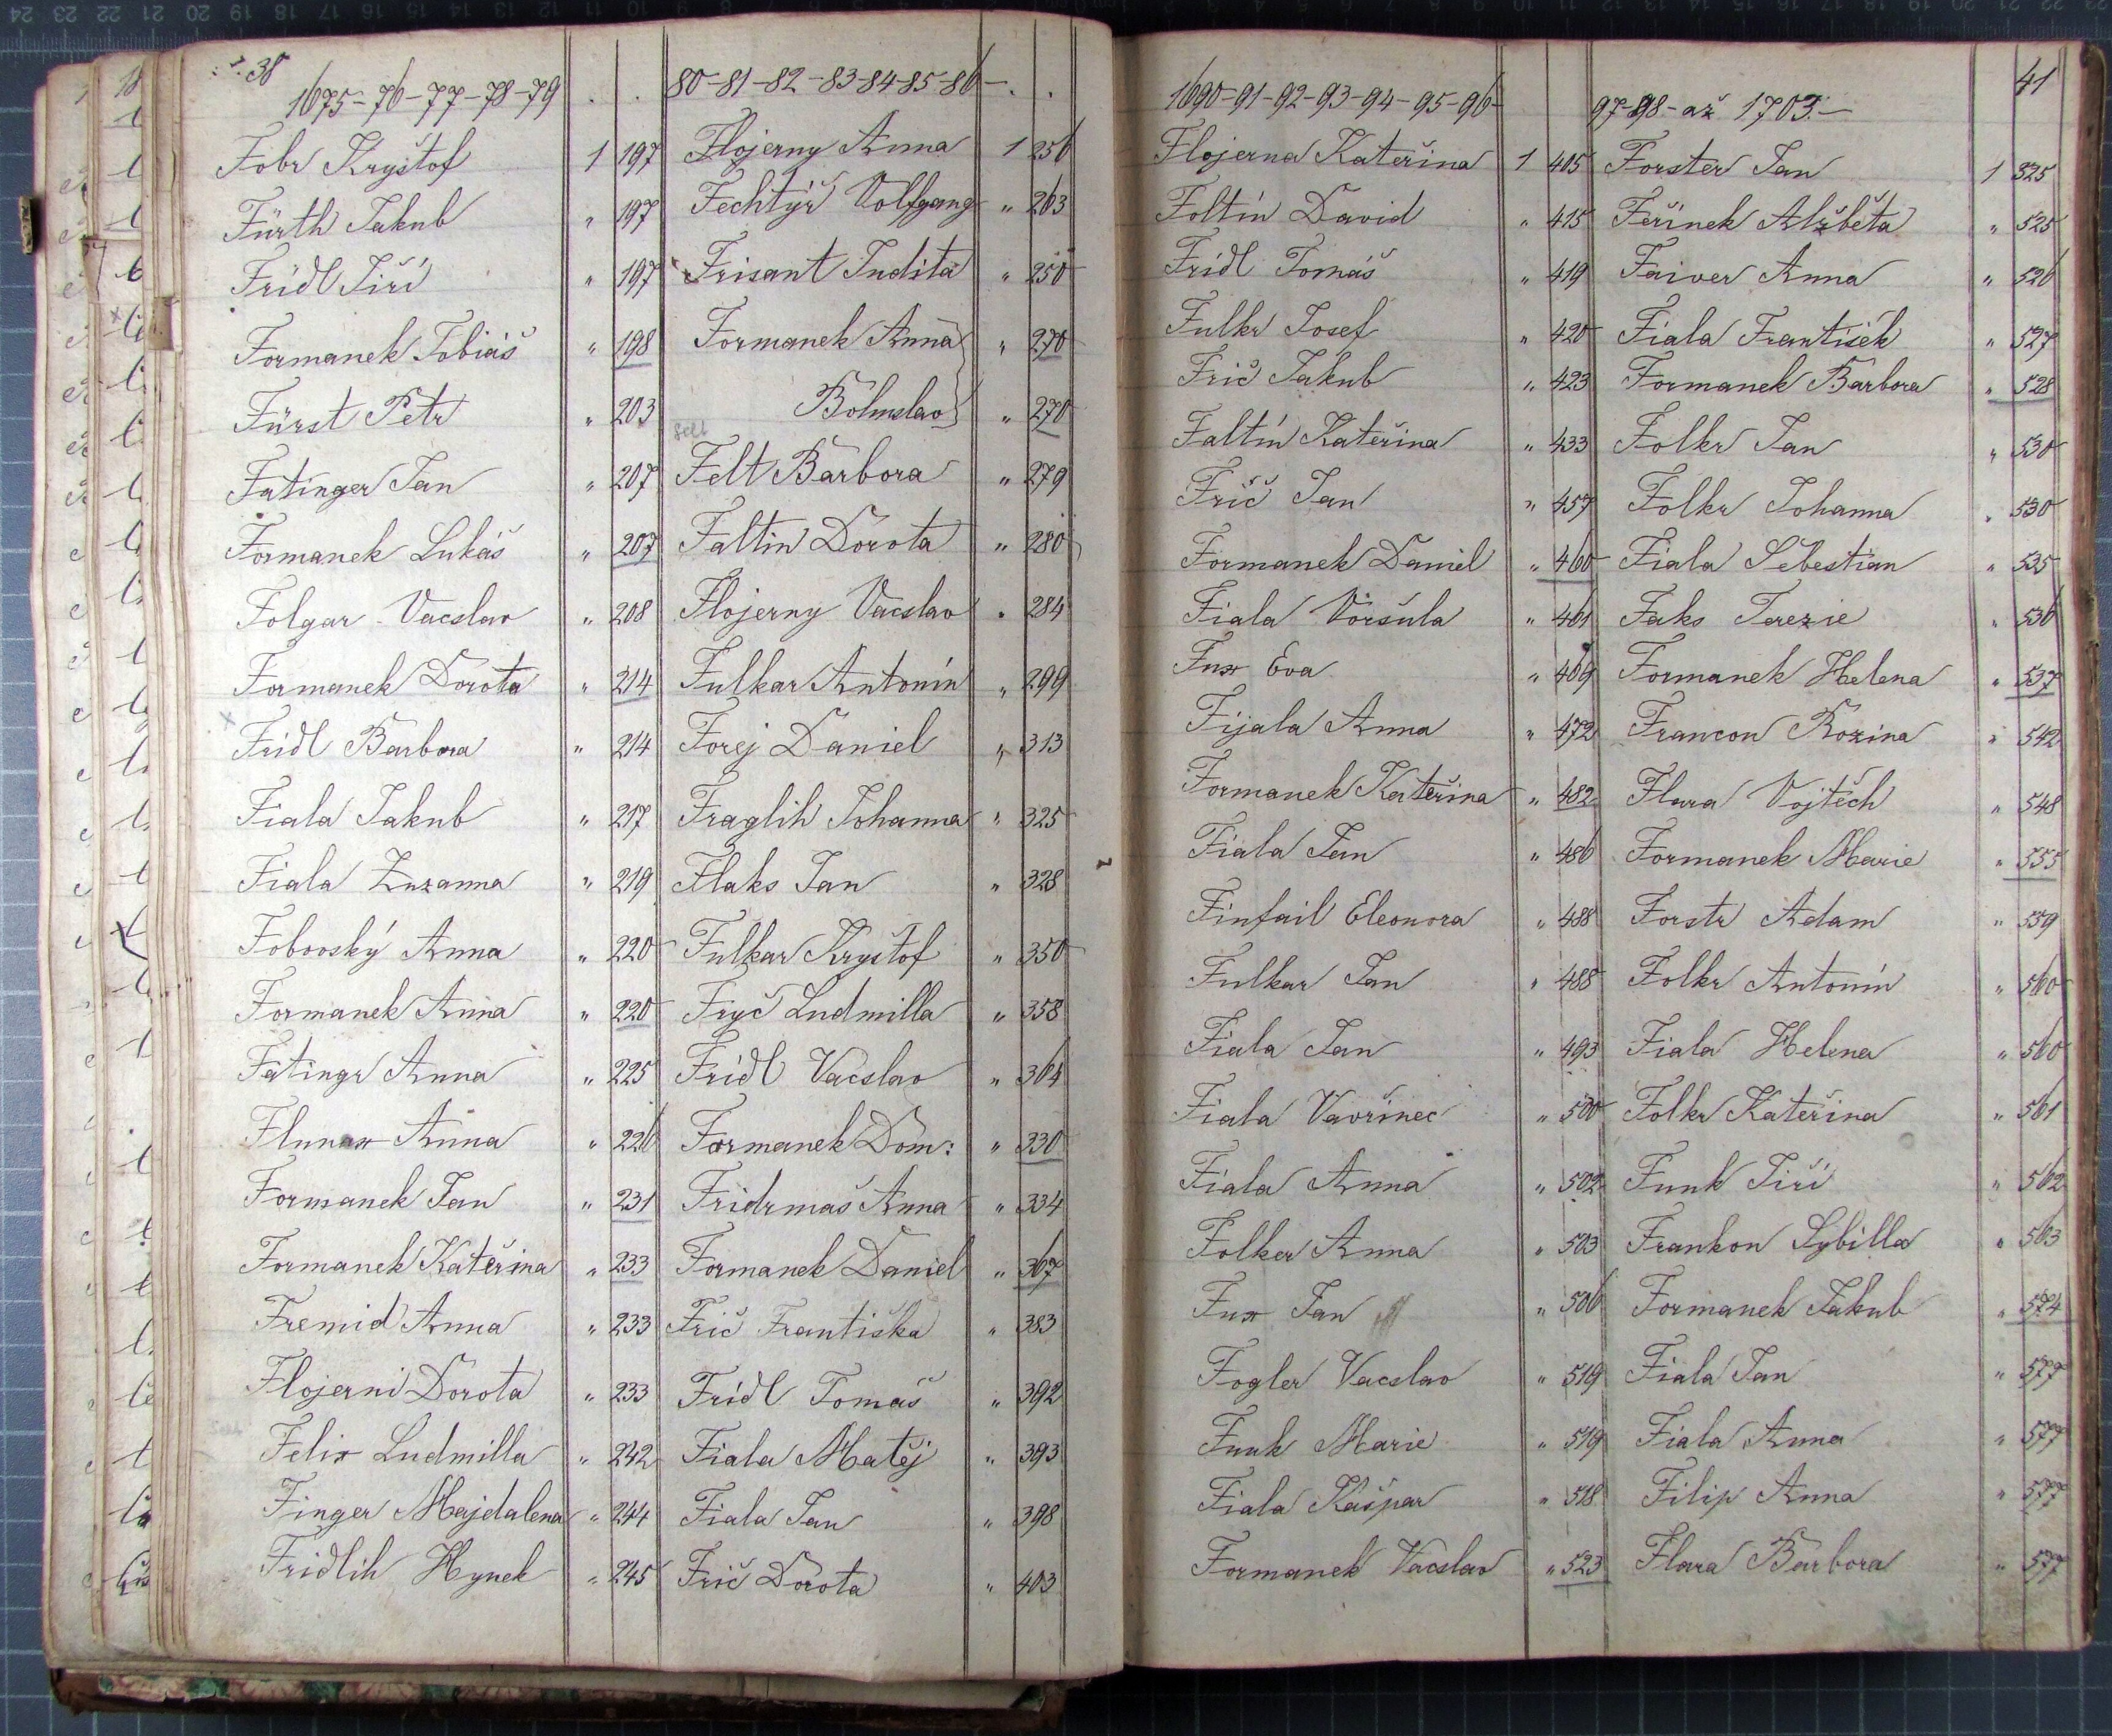 38
1675-76-77-78-79
Fobr Kryštof 1 197
Fürth Jakub " 197
Fridl Jiří " 197
Formanek Tobiáš " 198
Fürst Petr " 203
Fatinger Jan " 207
Formanek Lukáš " 207
Folgar Vacslav " 208
Formanek Dorota " 214
Fridl Barbora " 214
Fiala Jakub " 217
Fiala Zuzanna " 219
Fobovský Anna " 220
Formanek Anna " 220
Fatingr Anna " 225
Anna " 226
Formanek Jan " 231
Formanek Kateřina " 233
Fremid Anna " 233
Flojerni Dorota " 233
Felix Ludmilla " 242
Finger Majdalena " 244
Fridlih Hynek " 245
80-81-82-83-84-85-86-
Flojerny Anna 1 256
Fechtýř Volfgang " 263
Frisant Judita " 250
Formanek Anna " 270
Bohuslav " 270
Felt Barbora " 279
Faltin Dorota " 280
Flojerny Vacslav " 284
Fulkar Antonín " 299
Forej Daniel " 313
Fraglih Johanna " 325
Flaks Jan " 328
Fulkar Kryštof " 350
Fryč Ludmilla " 358
Fridl Vacslav " 364
Formanek Dom: " 330
Fridrmaš Anna " 334
Formanek Daniel " 367
Frič Frantiska " 383
Fridl Tomáš " 392
Fiala Matěj " 393
Fiala Jan " 398
Frič Dorota " 403
1690-91-92-93-94-95-96-
Flojerna Kateřina 1 405
Foltín David " 415
Fridl Tomáš " 419
Fulkr Josef " 420
Frič Jakub " 423
Faltín Kateřina " 433
Frič Jan " 457
Formanek Daniel " 460
Fiala Voršula " 461
Fux Eva " 469
Fijala Anna " 472
Formanek Kateřina " 482
Fiala Jan " 486
Finfail Eleonora " 488
Fulkar Jan " 488
Fiala Jan " 493
Fiala Vavřinec " 500
Fiala Anna " 502
Folker Anna " 503
Fux Jan " 506
Fogler Vacslav " 519
Funk Marie " 519
Fiala Kašpar " 518
Formanek Vacslav " 523
41
97-98-až 1703.-
Forster Jan 1 525
Feřinek Alžběta " 525
Faiver Anna " 526
Fiala František " 527
Formanek Barbora " 528
Folkr Jan " 530
Folkr Johanna " 530
Fiala Sebestian " 535
Faks Terezie " 536
Formanek Helena " 537
Francon Rozina " 542
Flara Vojtěch " 548
Formanek Marie " 555
Forstr Adam " 559
Folkr Antonín " 560
Fiala Helena " 560
Folkr Kateřina " 561
Funk Jiří " 562
Frankon Sybilla " 563
Formanek Jakub " 574
Fiala Jan " 577
Fiala Anna " 577
Filip Anna " 577
Flara Barbora " 577